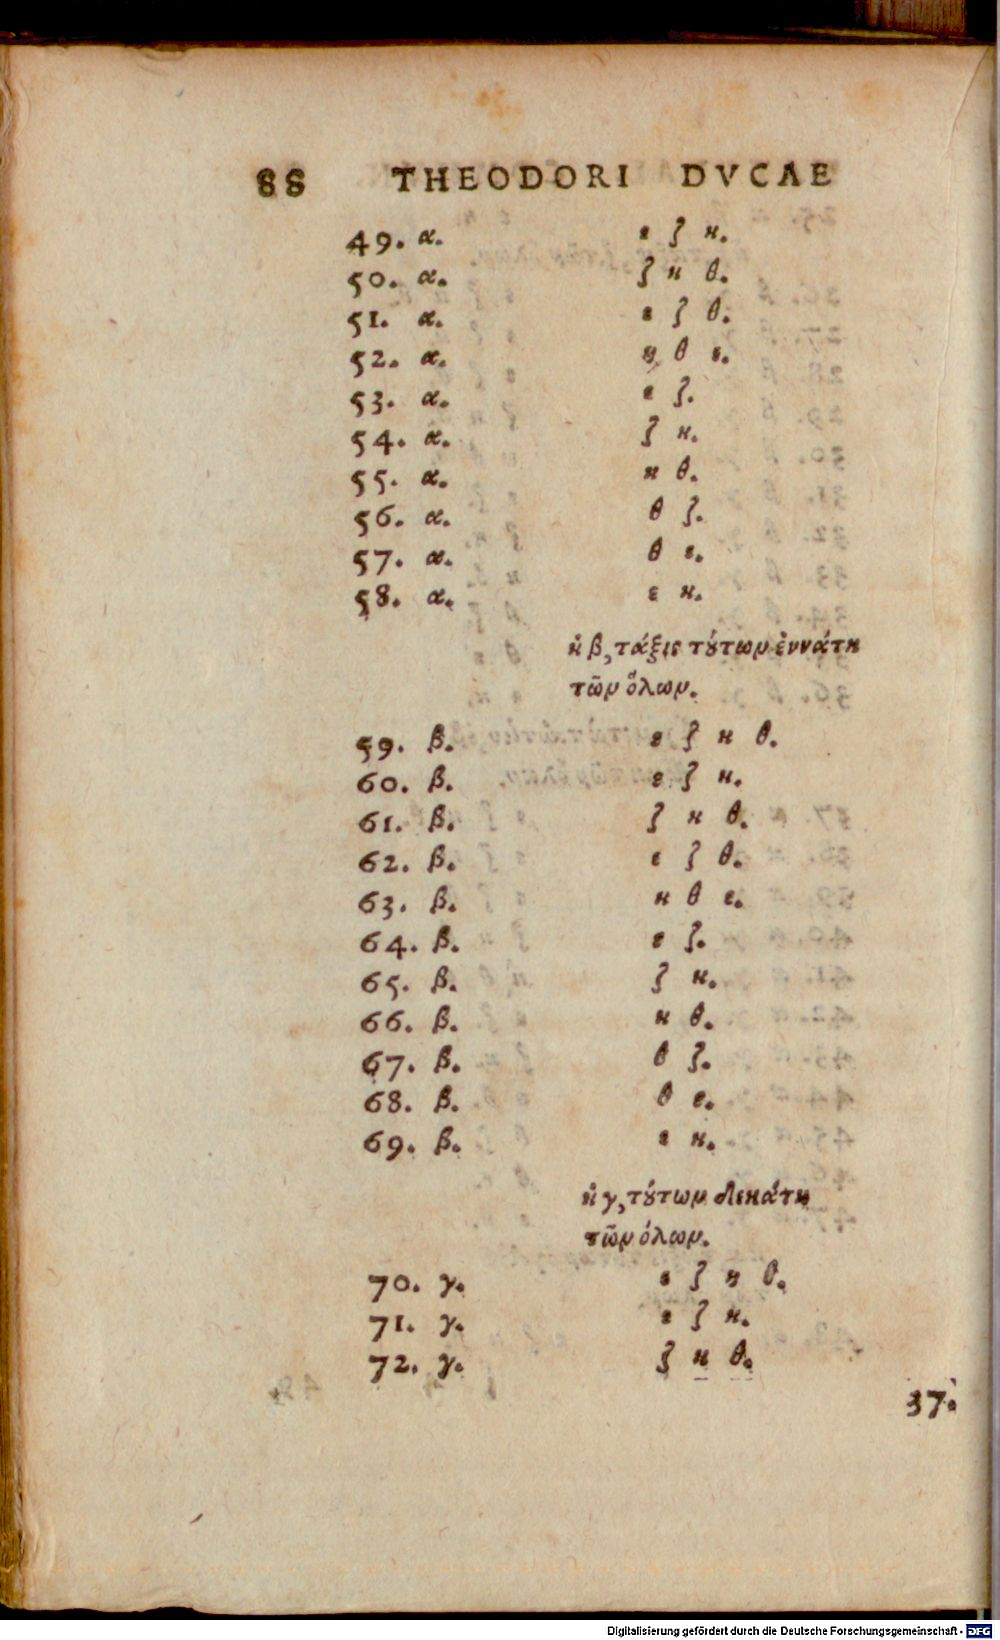 88 THEODORI DVCAE
49. α. ε ζ η.
50. α. ζ η θ.
51. α. ε ζ θ.
52. α. η θ ε.
53. α. ε ζ.
54. α. ζ η.
55. α. η θ.
56. α. θ ζ.
57. α. θ ε.
58. α. ε η.
ἡ β, τάξις τούτων ἐννάτη
τῶν ὅλων.
59. β. ε ζ η θ.
60. β. ε ζ η.
61. β. ζ η θ.
62. β. ε ζ θ.
63. β. η θ ε.
64. β. ε ζ.
65. β. ζ η.
66. β. η θ.
67. β. θ ζ.
68. β. θ ε.
69. β. ε η.
ἡ γ, τούτων δεκάτη
τῶν ὁλων.
70. γ. ε ζ η θ.
71. γ. ε ζ η.
72. γ. ζ η θ.
37.
Digitalisierung gefördert durch die Deutsche Forschungsgemeinschaft - DFG